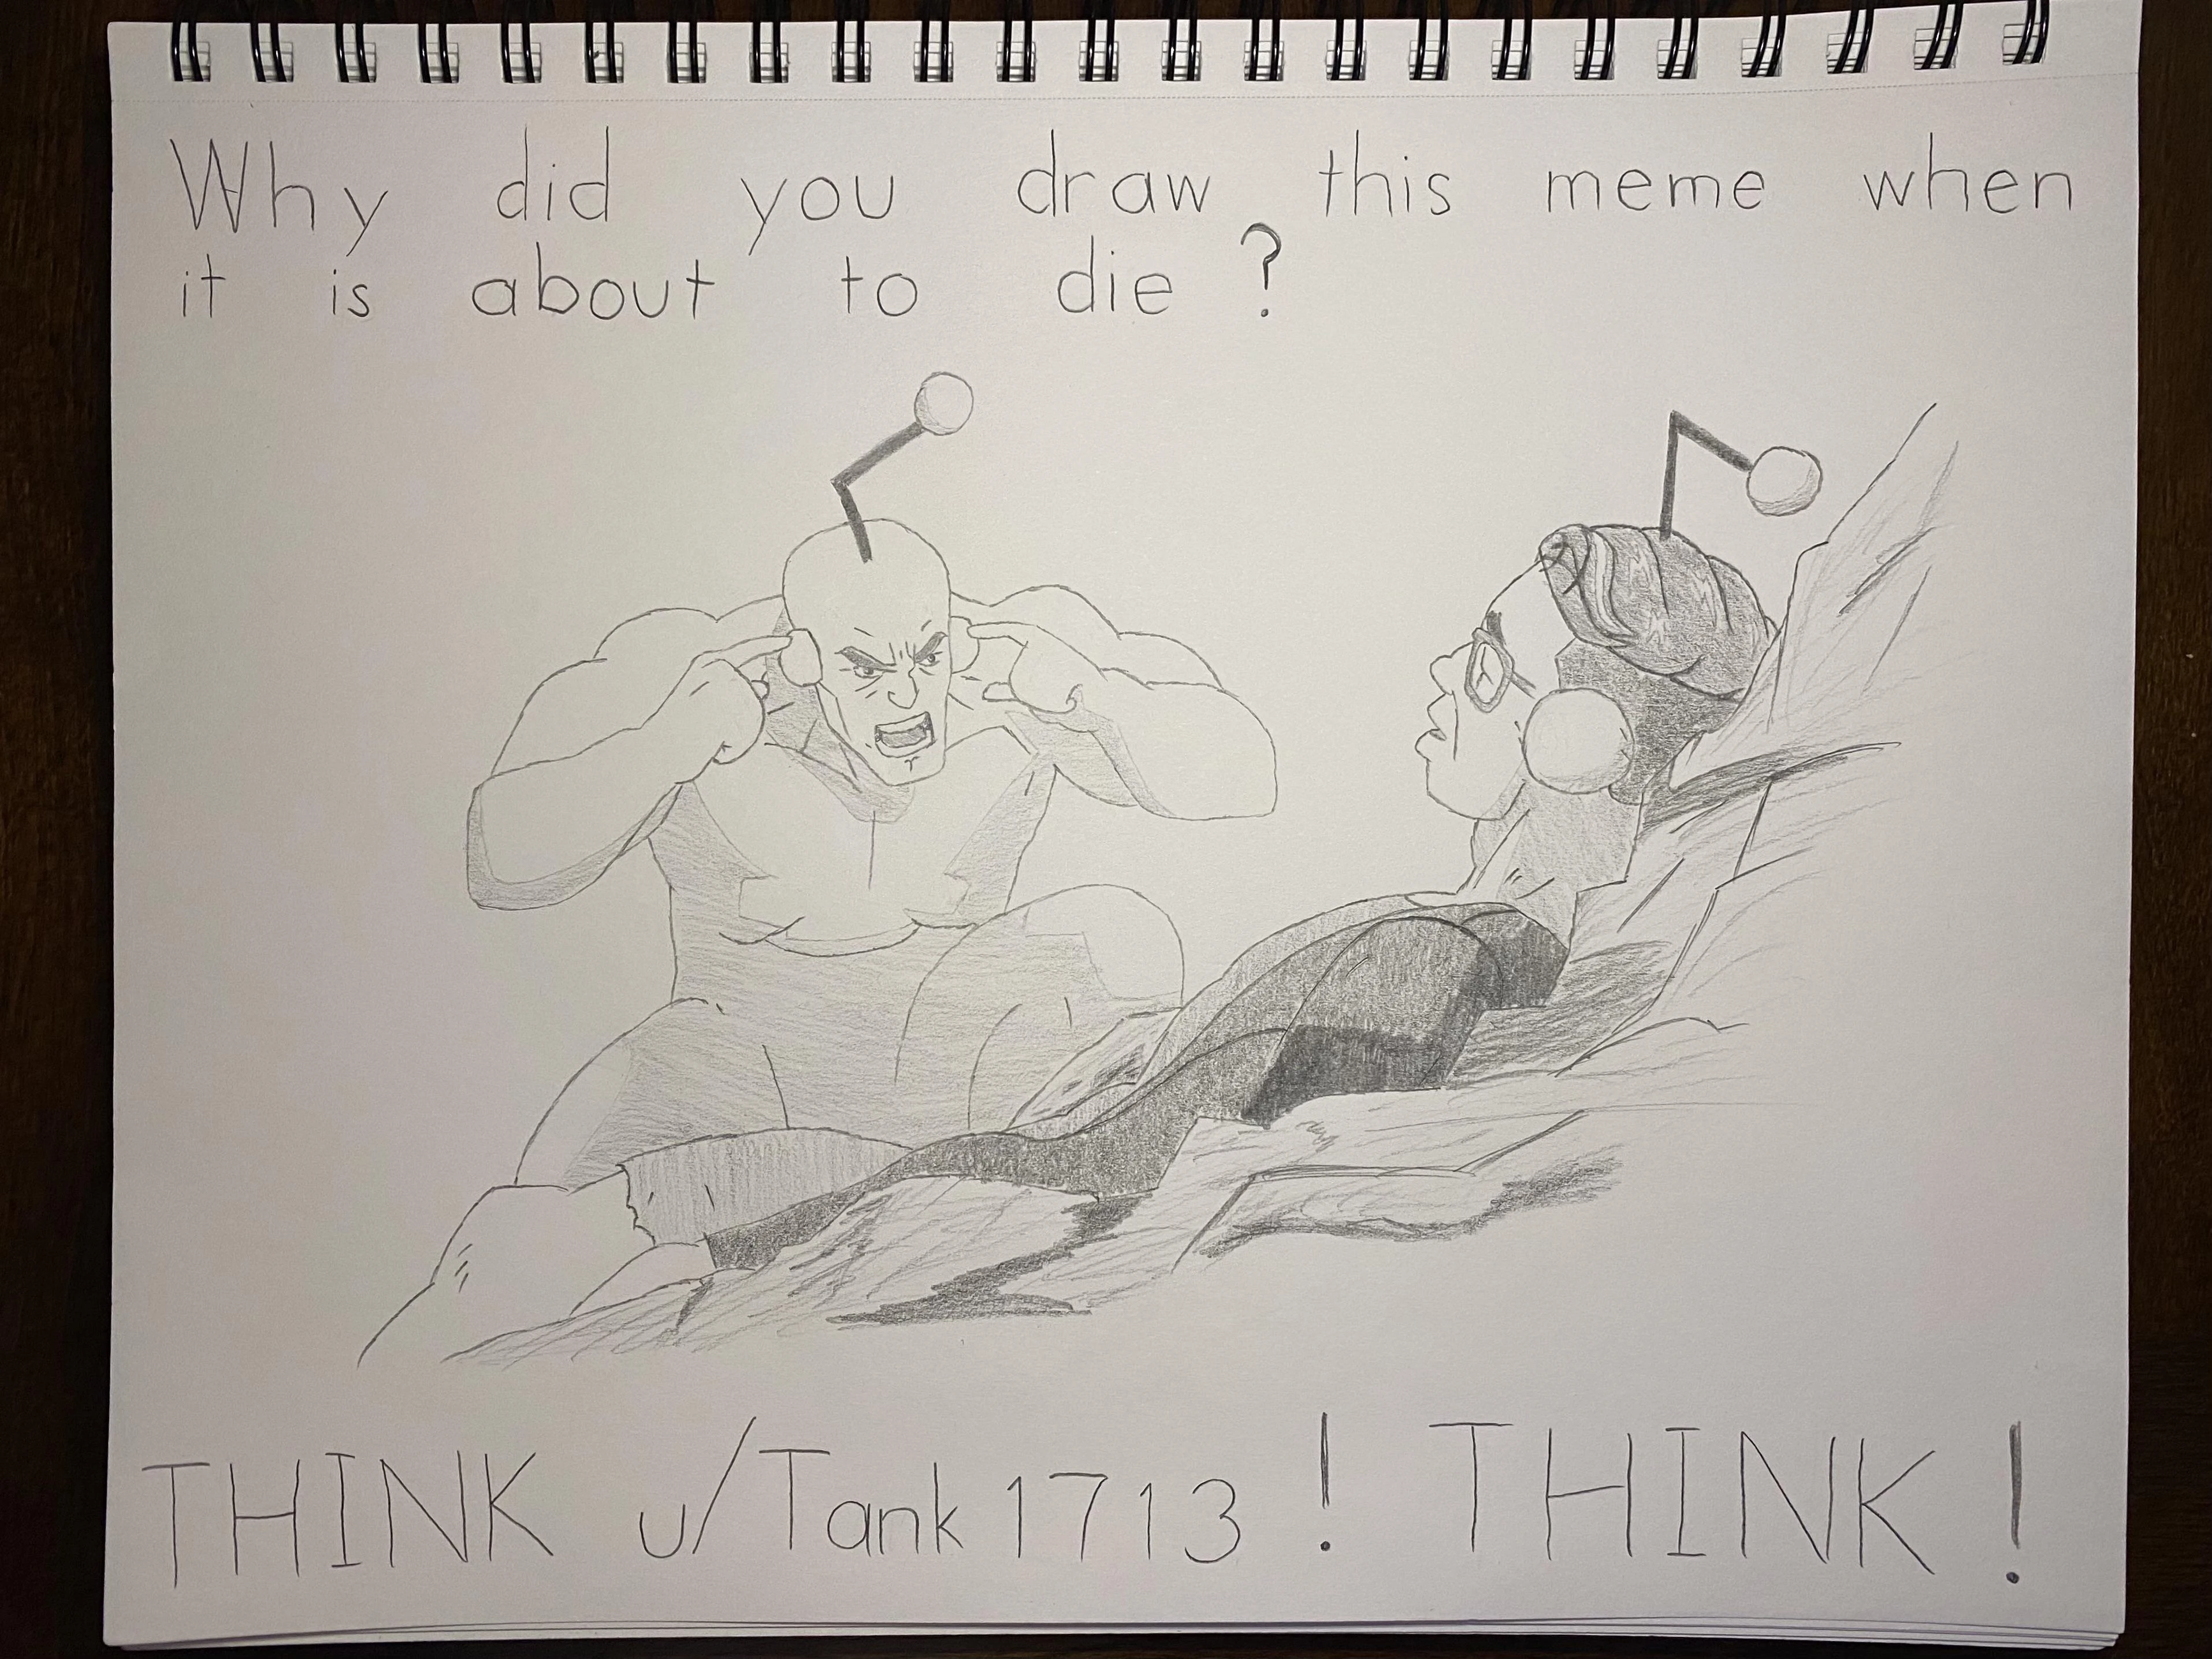 Why did you draw this meme when
it is about to die?
THINK u/Tank1713! THINK!